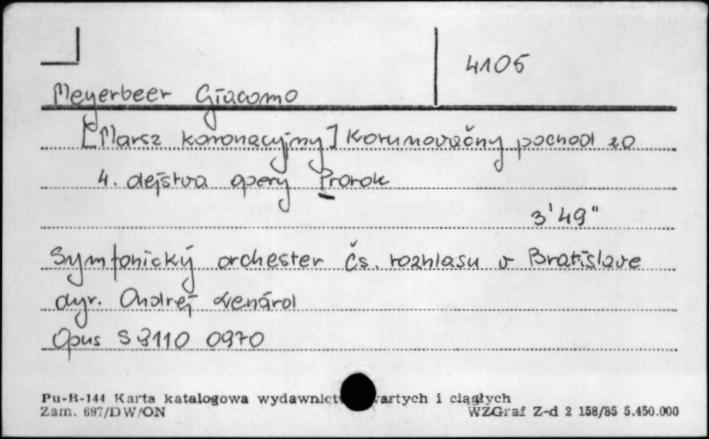 4105
Meyerbeer Giacomo
[Marsz koronacyjny] Korunovačný pochod zo
4. dejstva opery Prorok
3'49"
Symfonický orchester Čs. rozhlasu v Bratislave
dyr. Ondrej Lenárd
Opus S 8110 0970
Pu-B-144 Karta katalogowa wydawnict wartych i ciągłych
Zam. 697/DW/ON WZGraf Z-d 2 158/85 5.450.000